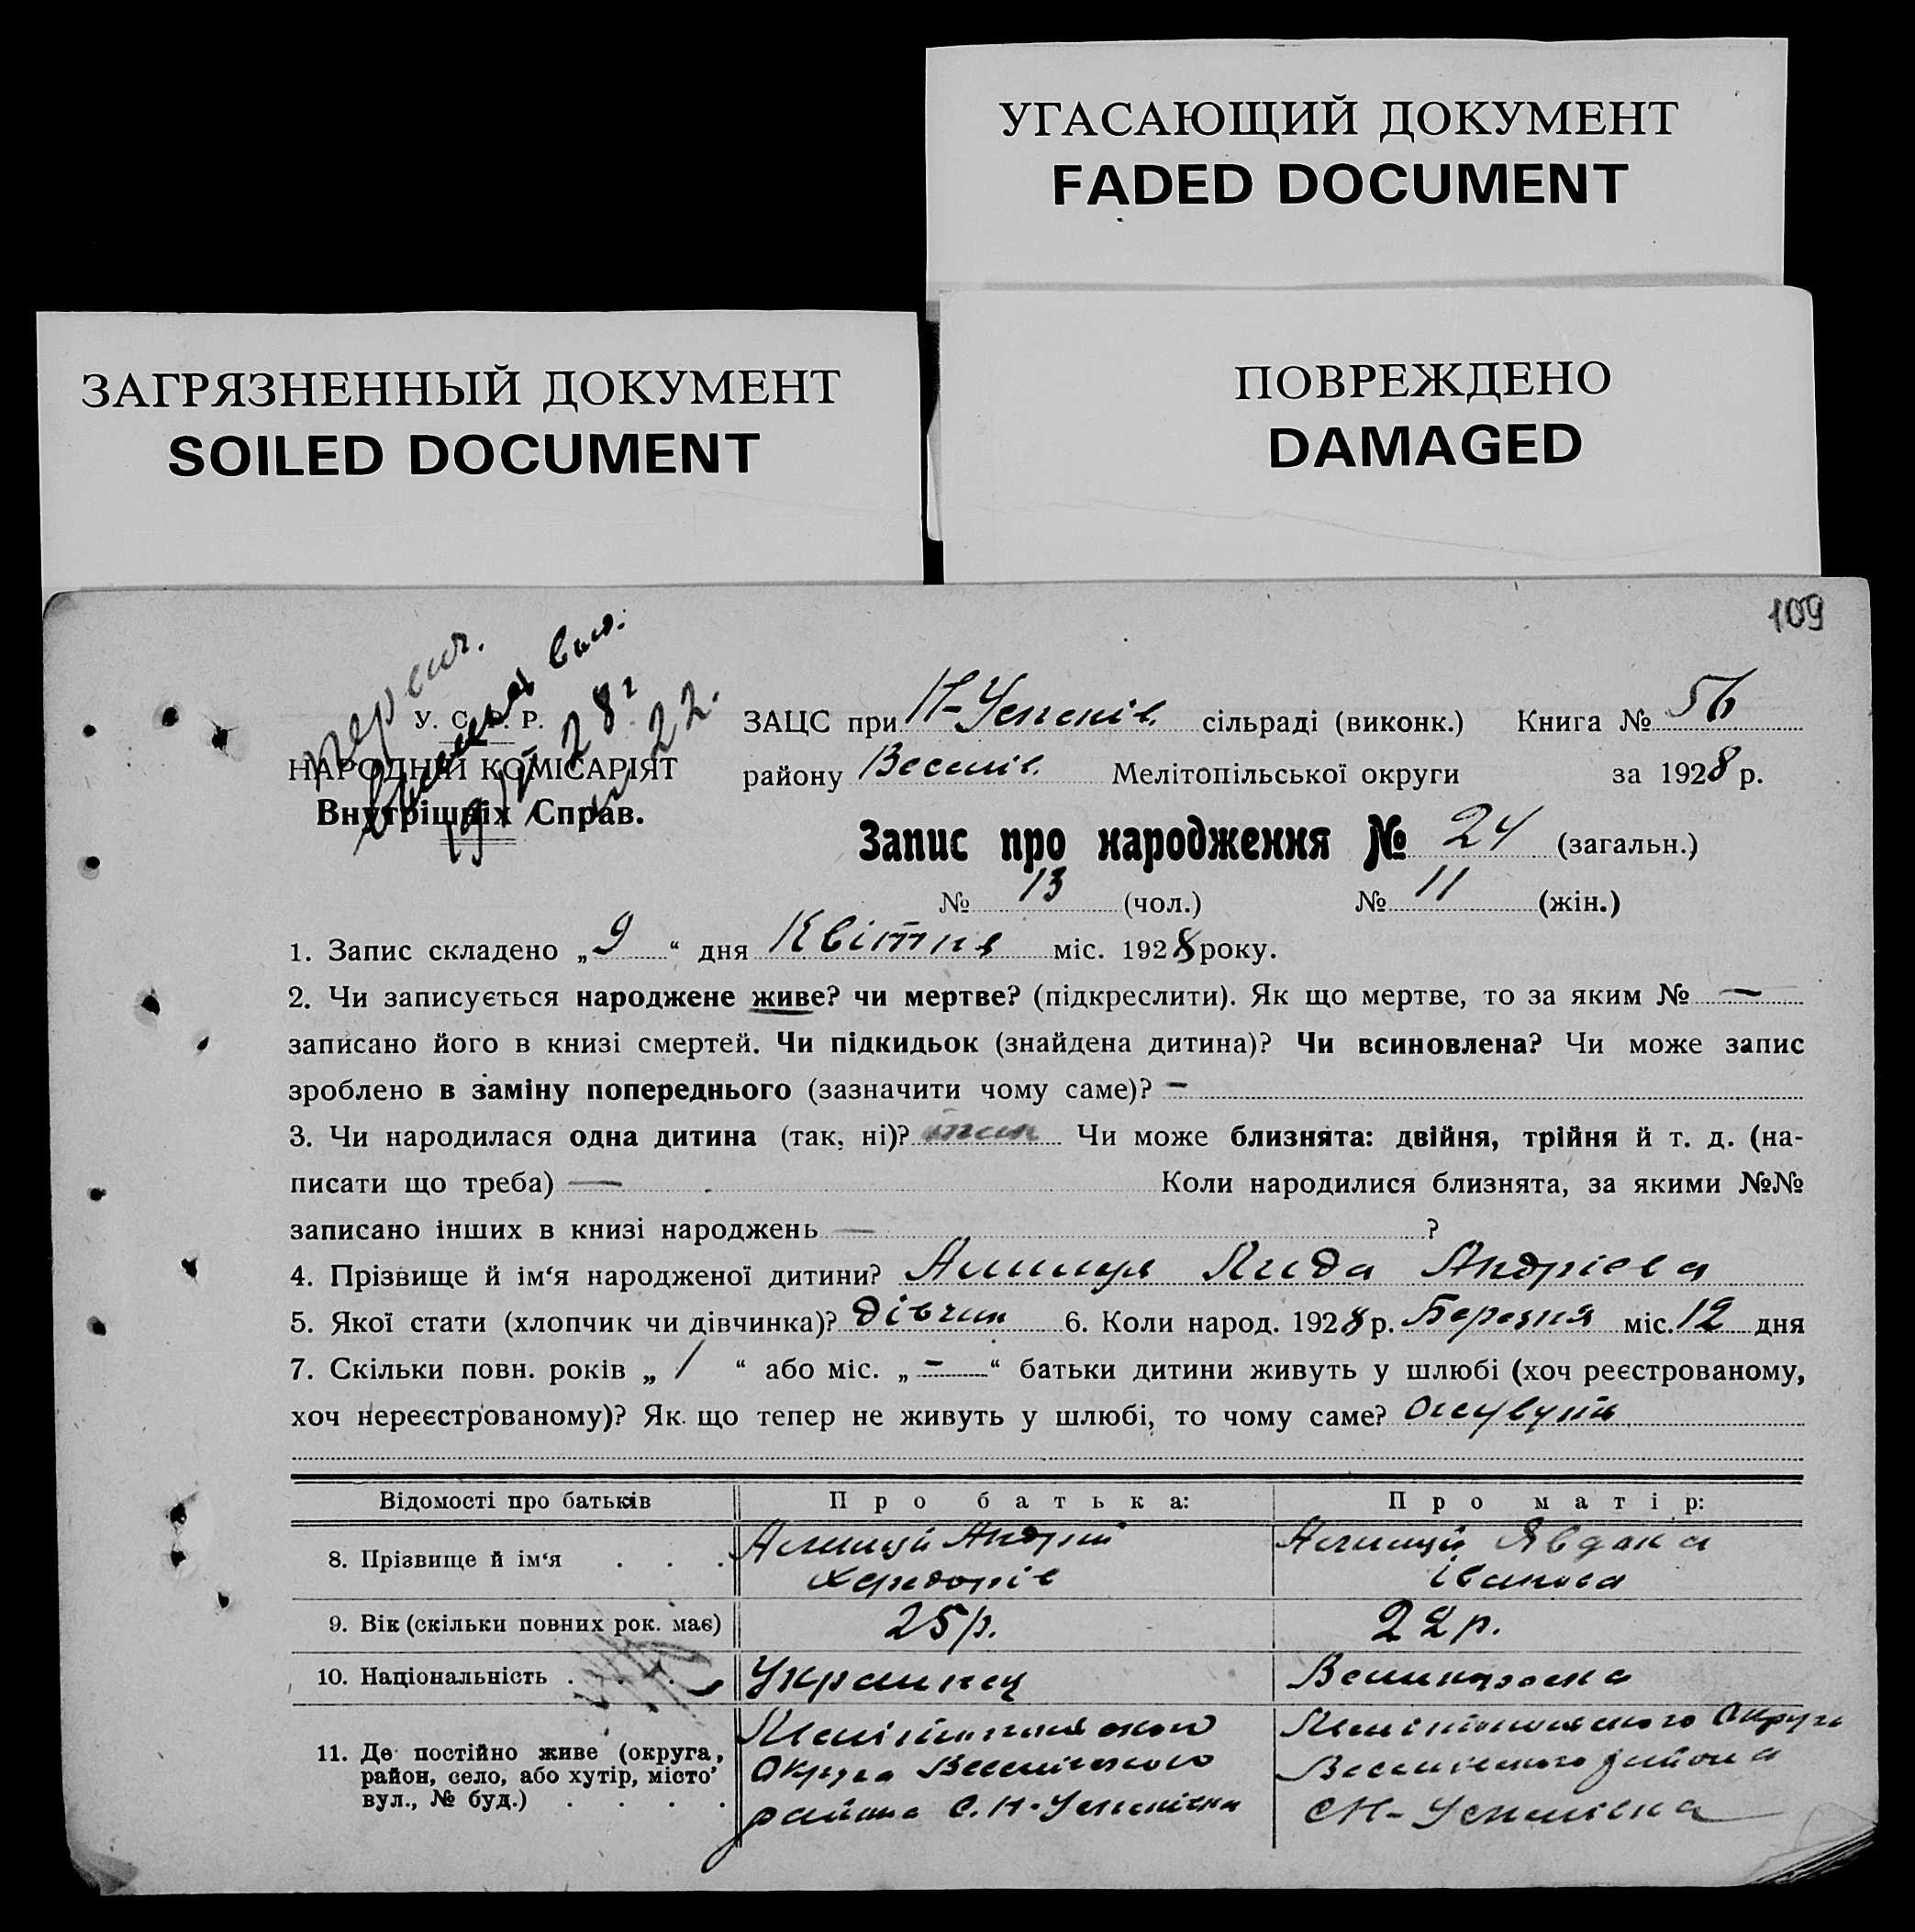 УГАСАЮЩИЙ ДОКУМЕНТ
FADED DOCUMENT
ЗАГРЯЗНЕННЫЙ ДОКУМЕНТ
SOILED DOCUMENT
ПОВРЕЖДЕНО
DAMAGED
109
У. С. Р. Р.
НАРОДНІЙ КОМІСАРІЯТ
Внутрішніх Справ.
ЗАЦС при Н-Успенів. сільраді (виконк.) Книга № 56
району Веселів. Мелітопільської округи за 1928 р.
Запис про народження № 24 (загальн.)
№ 13 (чол.) № 11 (жін.)
1. Запис складено „9“ дня Квітня міс. 1928 року.
2. Чи записується народжене живе? чи мертве? (підкреслити). Як що мертве, то за яким № —
записано його в книзі смертей. Чи підкидьок (знайдена дитина)? Чи всиновлена? Чи може запис
зроблено в заміну попереднього (зазначити чому саме)? —
3. Чи народилася одна дитина (так, ні)? так Чи може близнята: двійня, трійня й т. д. (на-
писати що треба) — Коли народилися близнята, за якими №№
записано інших в книзі народжень — ?
4. Прізвище й ім‘я народженої дитини? Лида Андріева
5. Якої стати (хлопчик чи дівчинка)? дівчин 6. Коли народ. 1928 р. Березня міс. 12 дня
7. Скільки повн. років „ 1 “ або міс. „ - “ батьки дитини живуть у шлюбі (хоч реєстрованому,
хоч нереєстрованому)? Як що тепер не живуть у шлюбі, то чому саме? живуть
Відомості про батьків Про батька: Про матір:
8. Прізвище й ім‘я . . . Андрій Явдока
Іванова
9. Вік (скільки повних рок. має) 25 р. 22 р.
10. Національність . . . Украинец Великороска
11. Де постійно живе (округа, Мелітопільского Округа
район, село, або хутір, місто, Округа Веселівского Веселівского району
вул., № буд.) . . . . района С. Н-Успенівка С Н-Успенівка